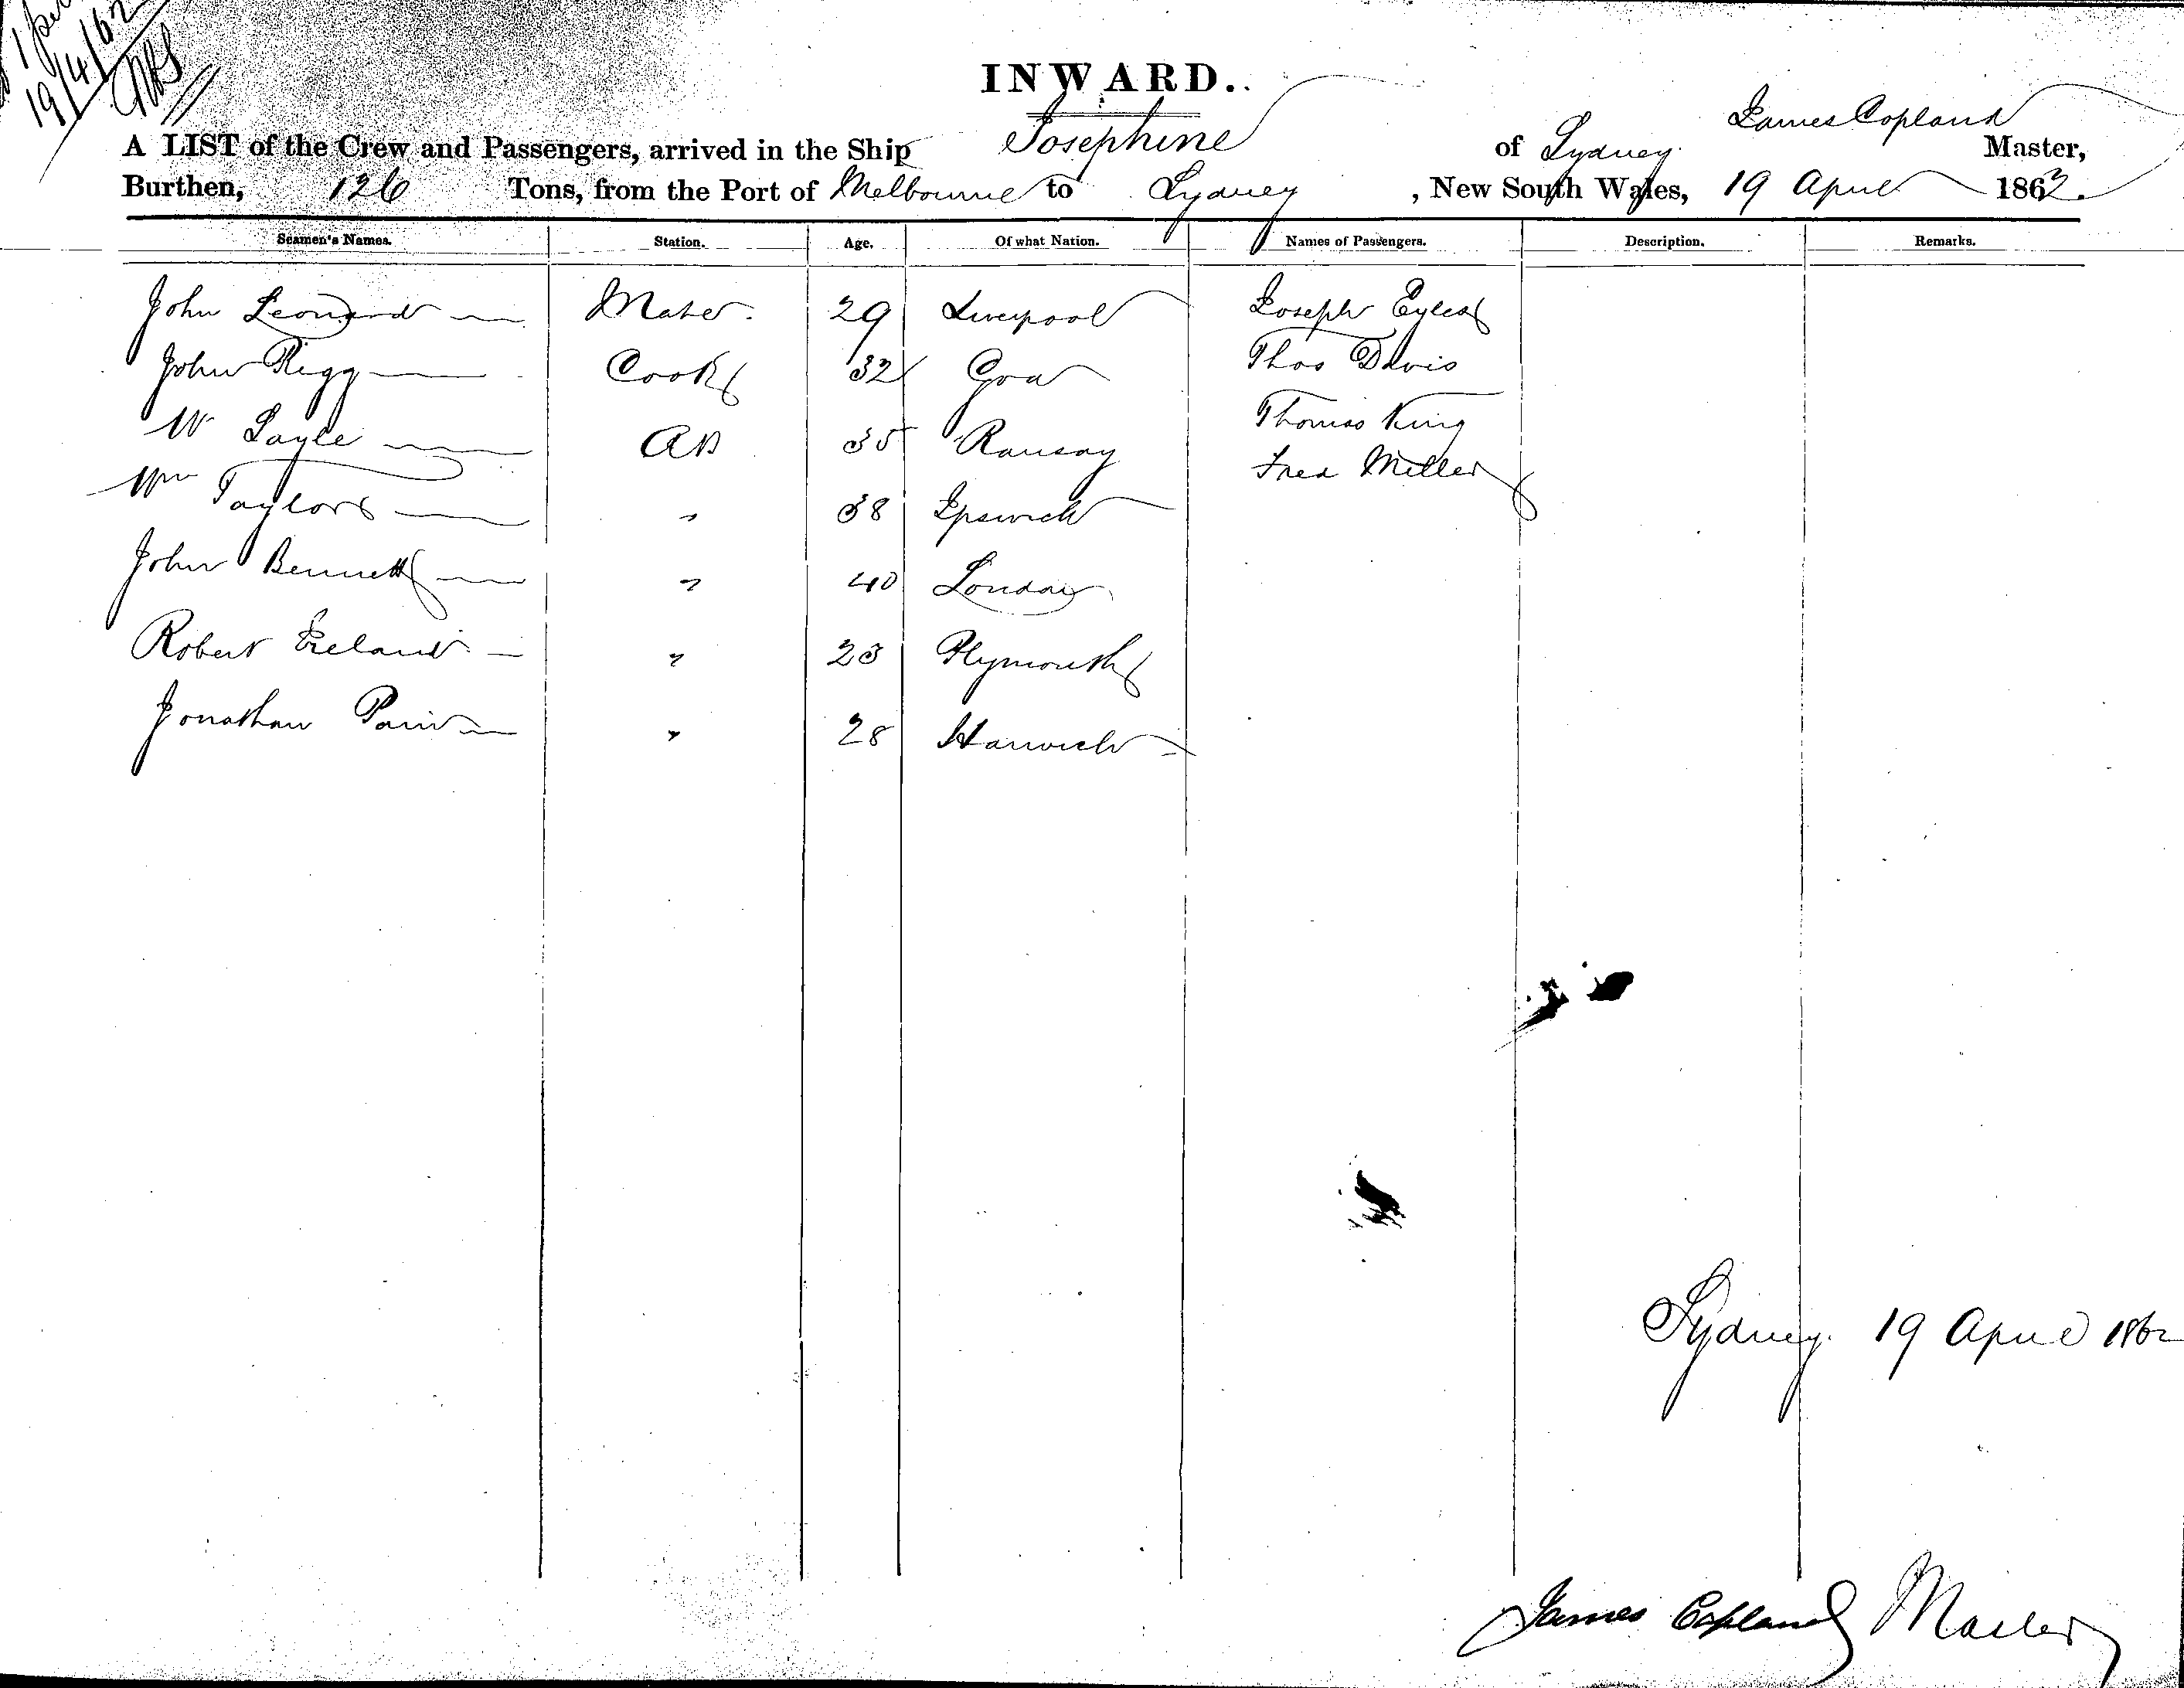 19/4/62
INWARD.
A LIST of the Crew and Passengers, arrived in the Ship Josephine of Sydney James Copland Master,
Burthen, 126 Tons, from the Port of Melbourne to Sydney, New South Wales, 19 April 1862.
Seamen's Names. Station. Age. Of what Nation. Names of Passengers. Description. Remarks.
John Leonard Mate 29 Liverpool Joseph Eyles
John Rigg Cook 32 Goa Thos Davis
W Layle AB 35 Ramsay Thomas King
Wm Taylor " 38 Ipswich Fred Miller
John Bennett " 40 London
Robert Ireland " 23 Plymouth
Jonathan Pain " 28 Harwich
Sydney 19 April 1862
James Copland Master